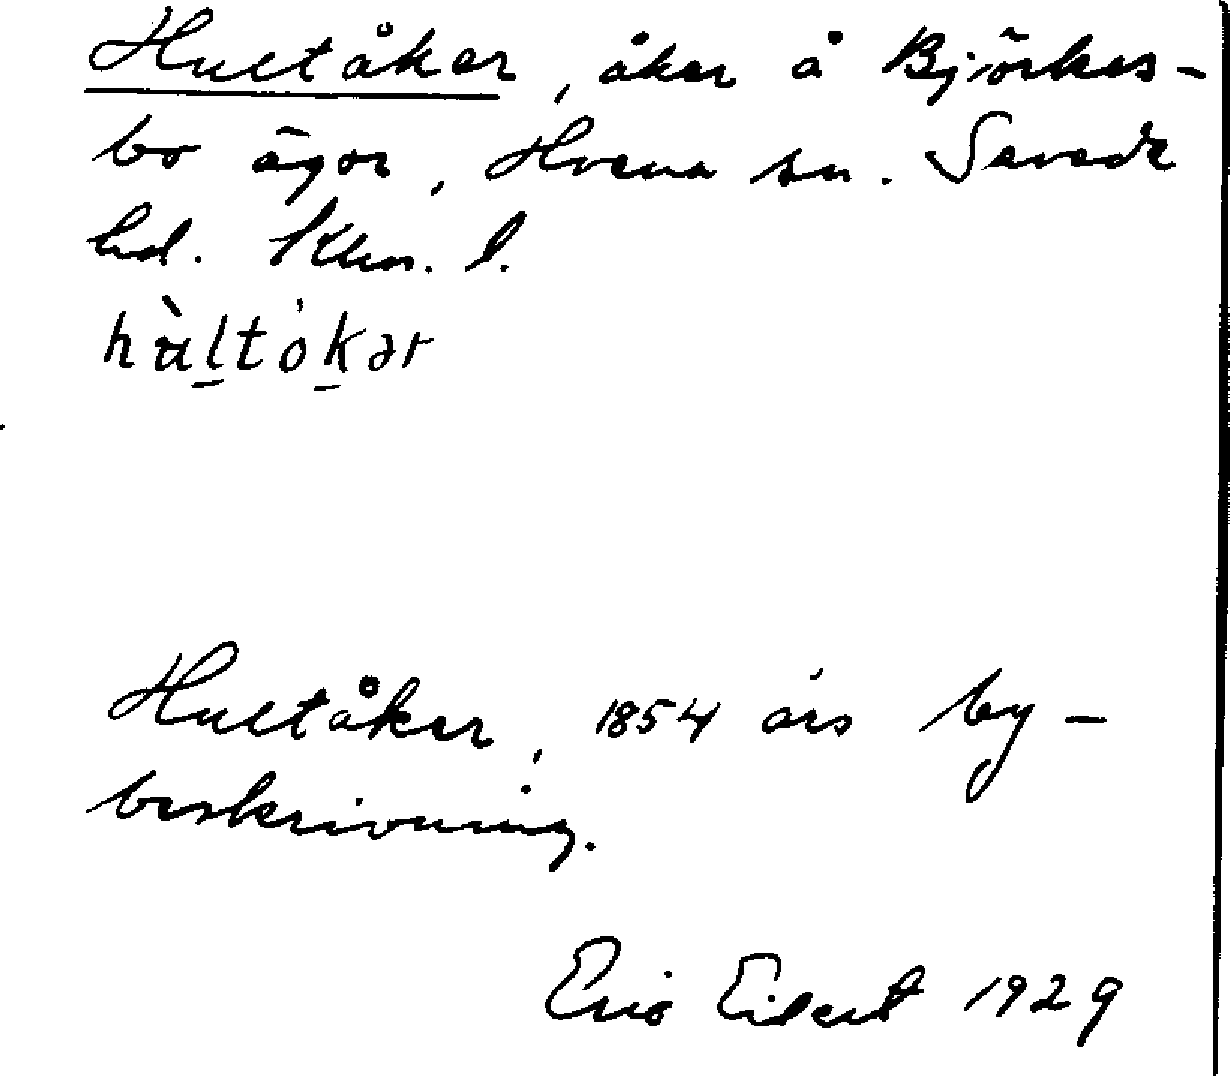 Hultåker, åker å Björkes-
bo ägor, Hvena sn. Sevede
hd. Klm. l.
hùltókər
Hultåker, 1854 års by-
beskrivning.
Eric Eilert 1929